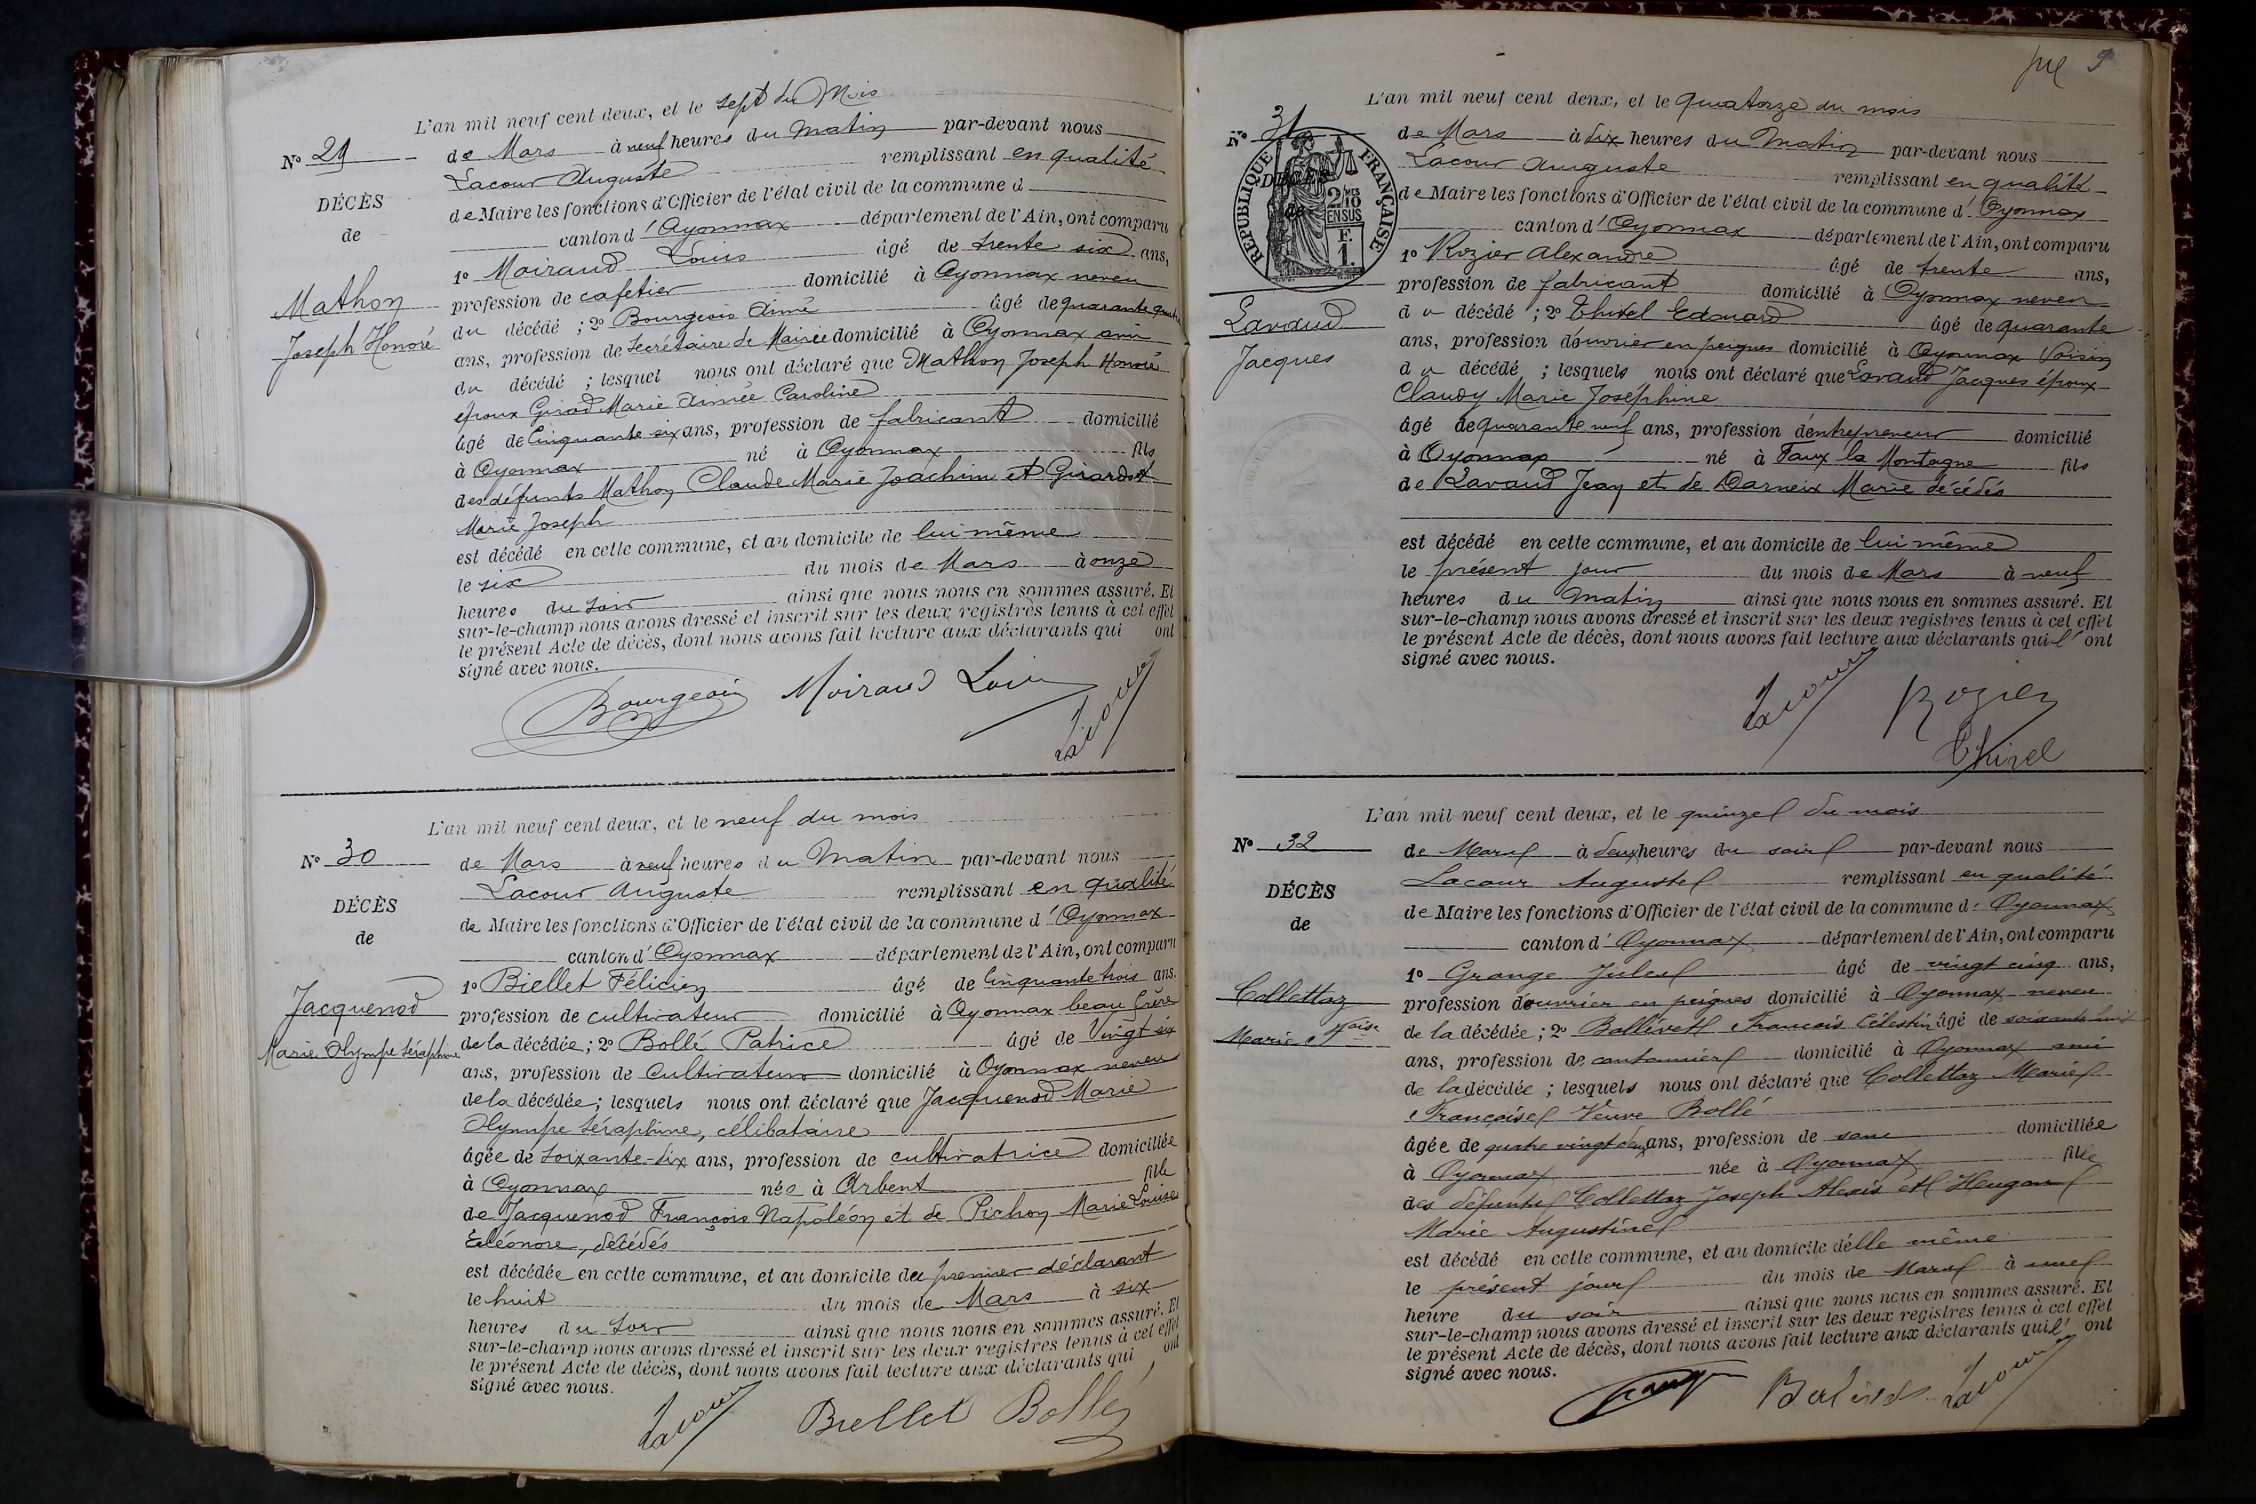 L'an mil neuf cent deux, et le sept du Mois
No 29
de Mars à neuf heures du Matin par-devant nous
Lacour Auguste remplissant en qualité
DÉCÈS
de Maire les fonctions d'Officier de l'état civil de la commune d
de
canton d'Oyonnax département de l'Ain, ont comparu
1o Moiraud Louis âgé de trente six ans,
Mathon
profession de cafetier domicilié à Oyonnax neveu
Joseph Honoré
du décédé ; 2o Bourgeois Aimé âgé de quarante quatre
ans, profession de Secrétaire de Mairie domicilié à Oyonnax ami
du décédé ; lesquel nous ont déclaré que Mathon Joseph Honoré
époux Girod Marie Aimée Caroline
âgé de Cinquante six ans, profession de fabricant domicilié
à Oyonnax né à Oyonnax fils
des défunts Mathon Claude Marie Joachim et Girardot
Marie Joseph
est décédé en cette commune, et au domicile de lui même
le six du mois de Mars à onze
heures du soir ainsi que nous nous en sommes assuré. Et
sur-le-champ nous avons dressé et inscrit sur les deux registres tenus à cet effet
le présent Acte de décès, dont nous avons fait lecture aux déclarants qui ont
signé avec nous.
Bourgeois Moiraud Louis Lacour
L'an mil neuf cent deux, et le neuf du mois
No 30
de Mars à neuf heures du Matin par-devant nous
Lacour Auguste remplissant en qualité
DÉCÈS
de Maire les fonctions d'Officier de l'état civil de la commune d'Oyonnax
de
canton d'Oyonnax département de l'Ain, ont comparu
1o Biellet Félicien âgé de Cinquante trois ans.
Jacquenod
profession de cultivateur domicilié à Oyonnax beau frère
Marie Olympe Séraphine
de la décédée ; 2o Bollé Patrice âgé de Vingt six
ans, profession de Cultivateur domicilié à Oyonnax neveu
de la décédée ; lesquels nous ont déclaré que Jacquenod Marie
Olympe Séraphine, célibataire
âgée de soixante-six ans, profession de cultivatrice domiciliée
à Oyonnax née à Arbent fille
de Jacquenod François Napoléon et de Pichon Marie Louise
Eléonore, décédés
est décédée en cette commune, et au domicile du premier déclarant
le huit du mois de Mars à six
heures du soir ainsi que nous nous en sommes assuré. Et
sur-le-champ nous avons dressé et inscrit sur les deux registres tenus à cet effet
le présent Acte de décès, dont nous avons fait lecture aux déclarants qui ont
signé avec nous.
Lacour Biellet Bollé
9
L'an mil neuf cent deux, et le quatorze du mois
No 31
de Mars à dix heures du Matin par-devant nous
Lacour Auguste remplissant en qualité
RÉPUBLIQUE FRANÇAISE
2/10 EN SUS
F. 1.
DÉCÈS
de Maire les fonctions d'Officier de l'état civil de la commune d'Oyonnax
de
canton d'Oyonnax département de l'Ain, ont comparu
1o Rozier Alexandre âgé de trente ans,
profession de fabricant domicilié à Oyonnax neveu
Lavaud
Jacques
du décédé ; 2o Thivel Edouard âgé de quarante
ans, profession d'ouvrier en peignes domicilié à Oyonnax Voisin
du décédé ; lesquels nous ont déclaré que Lavaud Jacques époux
Claudy Marie Joséphine
âgé de quarante neuf ans, profession d'entrepreneur domicilié
à Oyonnax né à Faux la Montagne fils
de Lavaud Jean et de Darneix Marie décédés
est décédé en cette commune, et au domicile de lui même
le présent jour du mois de Mars à neuf
heures du Matin ainsi que nous nous en sommes assuré. Et
sur-le-champ nous avons dressé et inscrit sur les deux registres tenus à cet effet
le présent Acte de décès, dont nous avons fait lecture aux déclarants qui l'ont
signé avec nous.
Lacour Rozier
Thivel
L'an mil neuf cent deux, et le quinze du mois
No 32
de Mars à deux heures du soir par-devant nous
Lacour Auguste remplissant en qualité
DÉCÈS
de Maire les fonctions d'Officier de l'état civil de la commune d'Oyonnax
de
canton d'Oyonnax département de l'Ain, ont comparu
1o Grange Jules âgé de vingt cinq ans,
Collettaz
profession d'ouvrier en peignes domicilié à Oyonnax neveu
Marie fçoise
de la décédée ; 2o Ballivet François Célestin âgé de soixante huit
ans, profession de cantonnier domicilié à Oyonnax ami
de la décédée ; lesquels nous ont déclaré que Collettaz Marie
Françoise Veuve Bollé
âgée de quatre vingt deux ans, profession de sans domiciliée
à Oyonnax née à Oyonnax fille
des défunts Collettaz Joseph Alexis et Hugon
Marie Augustine
est décédé en cette commune, et au domicile d'elle même
le présent jour du mois de Mars à une
heure du soir ainsi que nous nous en sommes assuré. Et
sur-le-champ nous avons dressé et inscrit sur les deux registres tenus à cet effet
le présent Acte de décès, dont nous avons fait lecture aux déclarants qui l'ont
signé avec nous.
Lacour